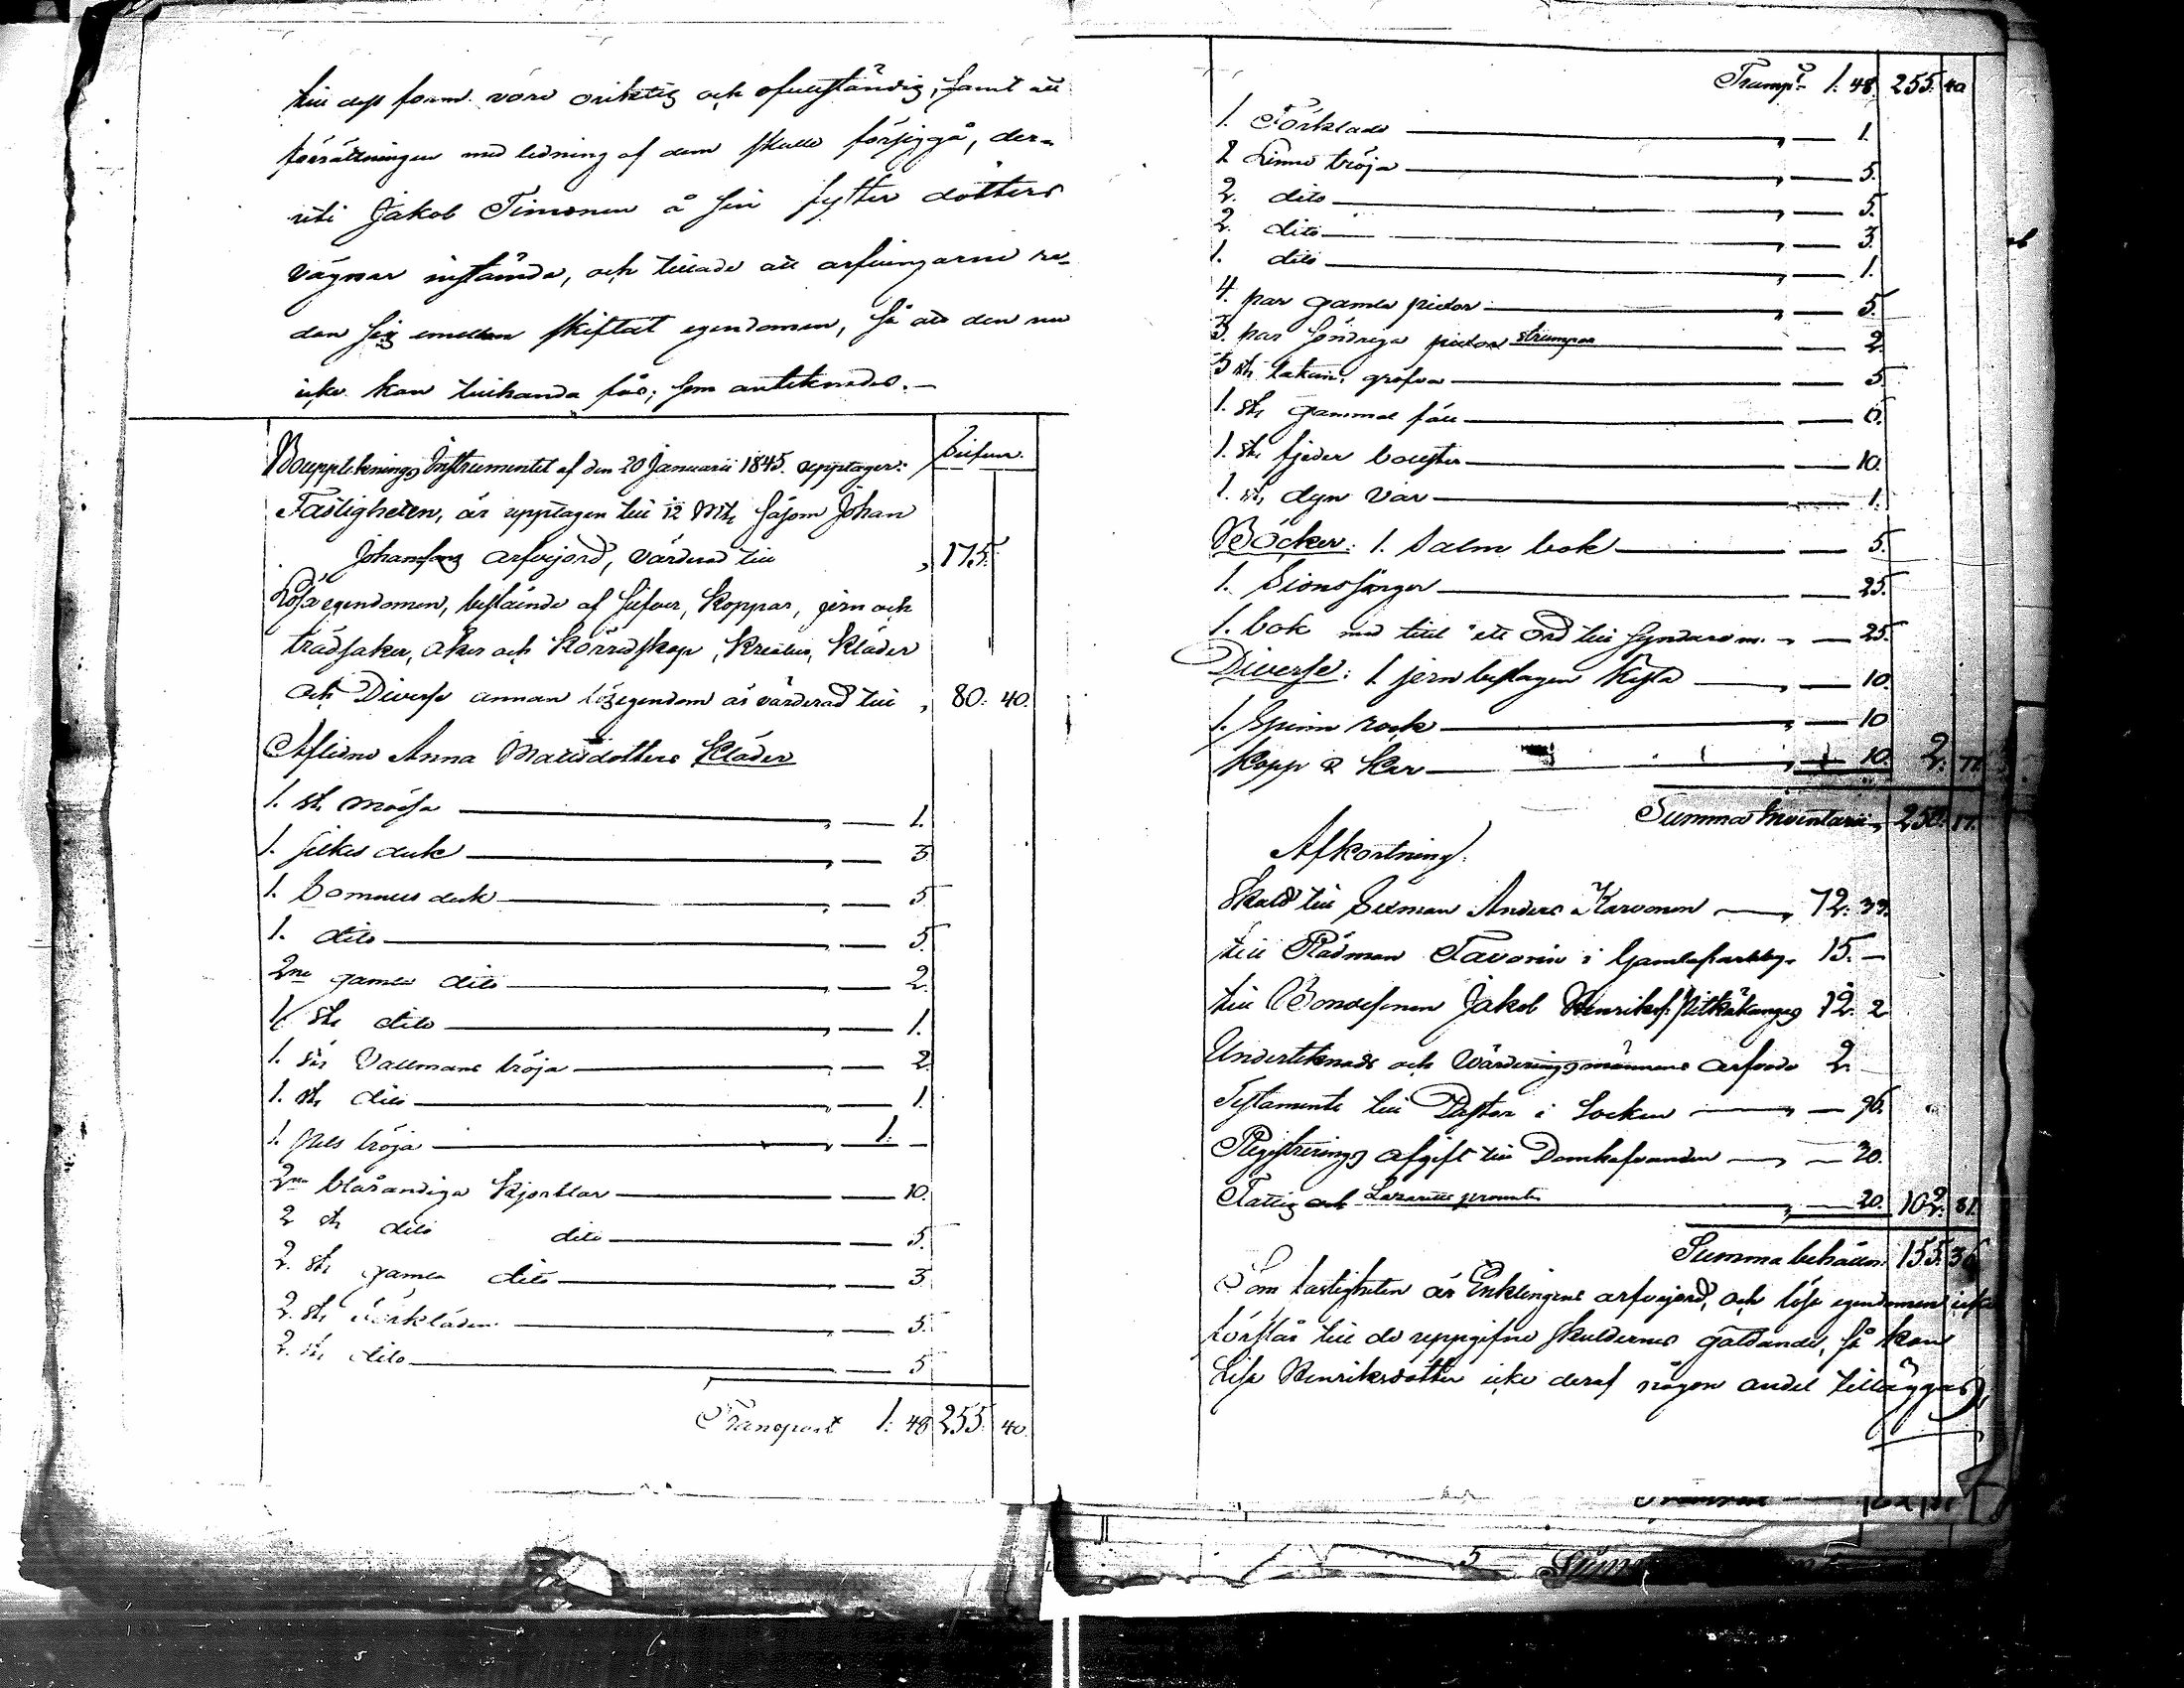 till dess form vore oriktig och ofullständig, samt att
förrättningen med ledning af dem skulle försiggå, der-
uti Jakob Timonen å sin syster dotters
vägnar instämde, och tillade att arfvingarne re-
dan sig emellan skiftat egendomen, så att den nu
icke kan tillhanda fås; som antecknades.—
Boupptecknings Instrumentet af den 20 Januarii 1845. upptager:
Silfver.
Fastigheten, är upptagen till 12 Mtl såsom Johan
Johansons arfvejord, värderad till 175.
Lösa egendomen, bestående af silfver, koppar, jern och
trädsaker, åker och körredskap, kreatur, kläder
och Diverse annan lösegendom är värderad till 80: 40.
Aflidne Anna Mattsdotters Kläder
1. st. mössa — 1.
1. silkes duk — 3.
1. bomulls duk — 5.
1. dito — 5.
2ne gamla dito — 2.
1 st. dito — 1.
1. st. Vallmans tröja — 2.
1. st. dito — 1.
1. pels tröja 1. —
2ne blårandiga kjortlar — 10.
2 st. dito dito — 5.
2. st. gamla dito — 3
2. st. förkläden — 5.
2. st. dito — 5
Transport 1: 48 255: 40.
Transpt 1: 48. 255: 40
1. Förkläde — 1.
2 Linne tröja — 5.
2. dito — 5.
2. dito — 3.
1. dito — 1.
4. par gamla — 5.
3. par söndriga strumpor — 2.
3 st. lakan, grofva — 5.
1. st. gammal fäll — 6.
1. st. fjeder bolster — 10.
1. st. dyn var — 1.
Böcker: 1. Salm bok — 5.
1. Sions sånger — 25.
1. bok med titel "ett Ord till syndare m. — 25.
Diverse: 1 jern beslagen kista — 10.
1. Spinn rock — 10
Kopp & kar — 10. 2: 77.
Summa Inventarii 258. 17.
Afkortning.
Skuld till Sexman Anders Karvonen — 72: 33.
till Rådman Favorin i Gamlakarleby 15. —
till Bondesonen Jakob Henriks. Pitkäkangas 12. 2
Undertecknads och Wärderingsmännens arfvode 2.
Testamente till Pastor i Socken — 96.
Registrerings afgift till Domhafvanden — 20.
Fattig och Lazaretts procenter — 20. 102: 81.
Summa behålln. 155. 36
Som fastigheten är Enklingens arfvejord, och lösa egendomen icke
förslår till de uppgifne skuldernes gäldande, så kan
Lisa Henriksdotter icke deraf någon andel tilläggas,